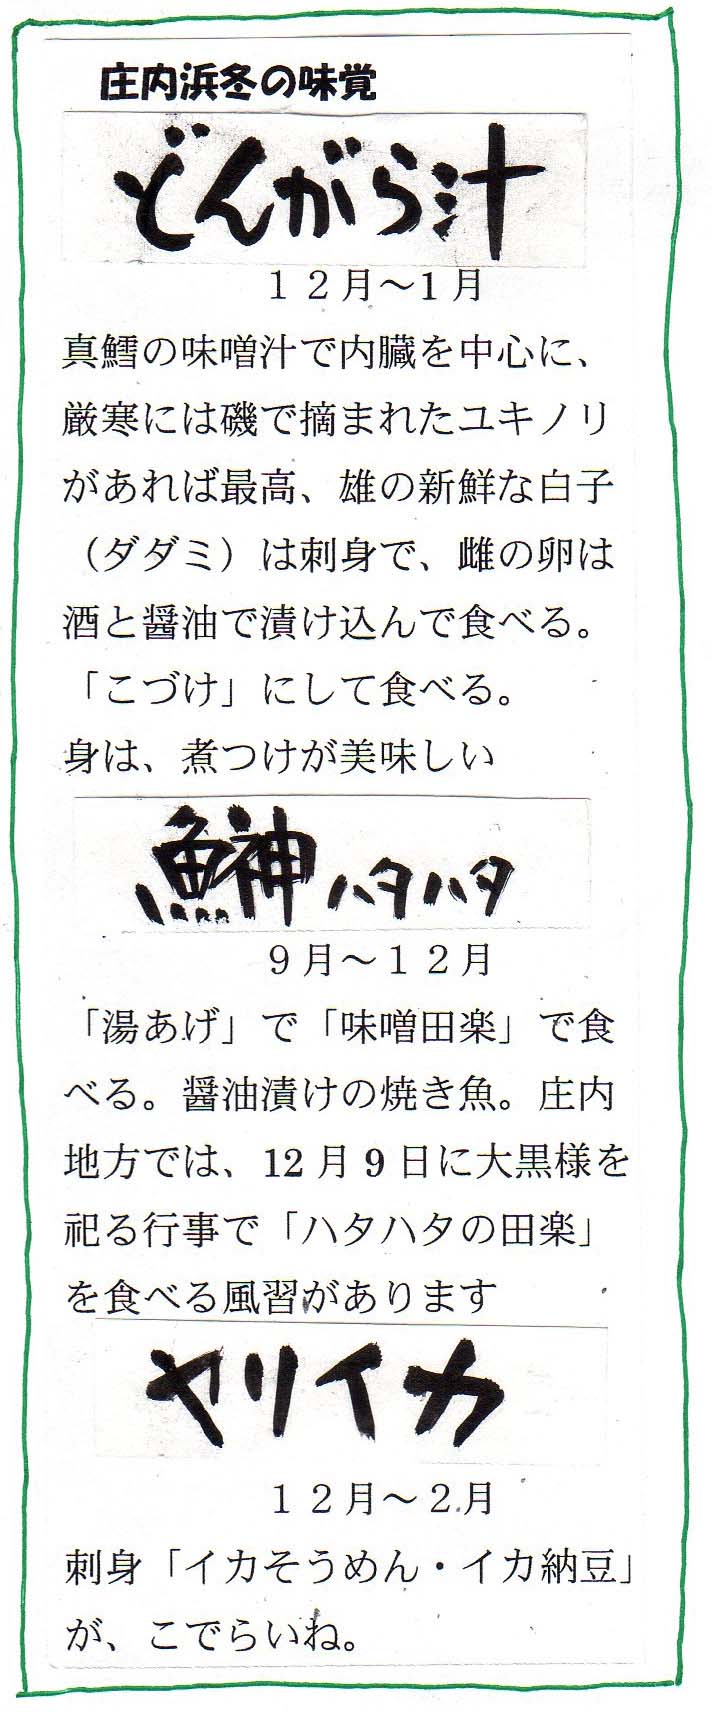 庄内浜冬の味覚
どんがら汁
１２月～1月
真鱈の味噌汁で内臓を中心に、
厳寒には磯で摘まれたユキノリ
があれば最高、雄の新鮮な白子
（ダダミ）は刺身で、雌の卵は
酒と醤油で漬け込んで食べる。
「こづけ」にして食べる。
身は、煮つけが美味しい
鰰ハタハタ
９月～１２月
「湯あげ」で「味噌田楽」で食
べる。醤油漬けの焼き魚。庄内
地方では、12月9日に大黒様を
祀る行事で「ハタハタの田楽」
を食べる風習があります
ヤリイカ
１２月～２月
刺身「イカそうめん・イカ納豆」
が、こでらいね。